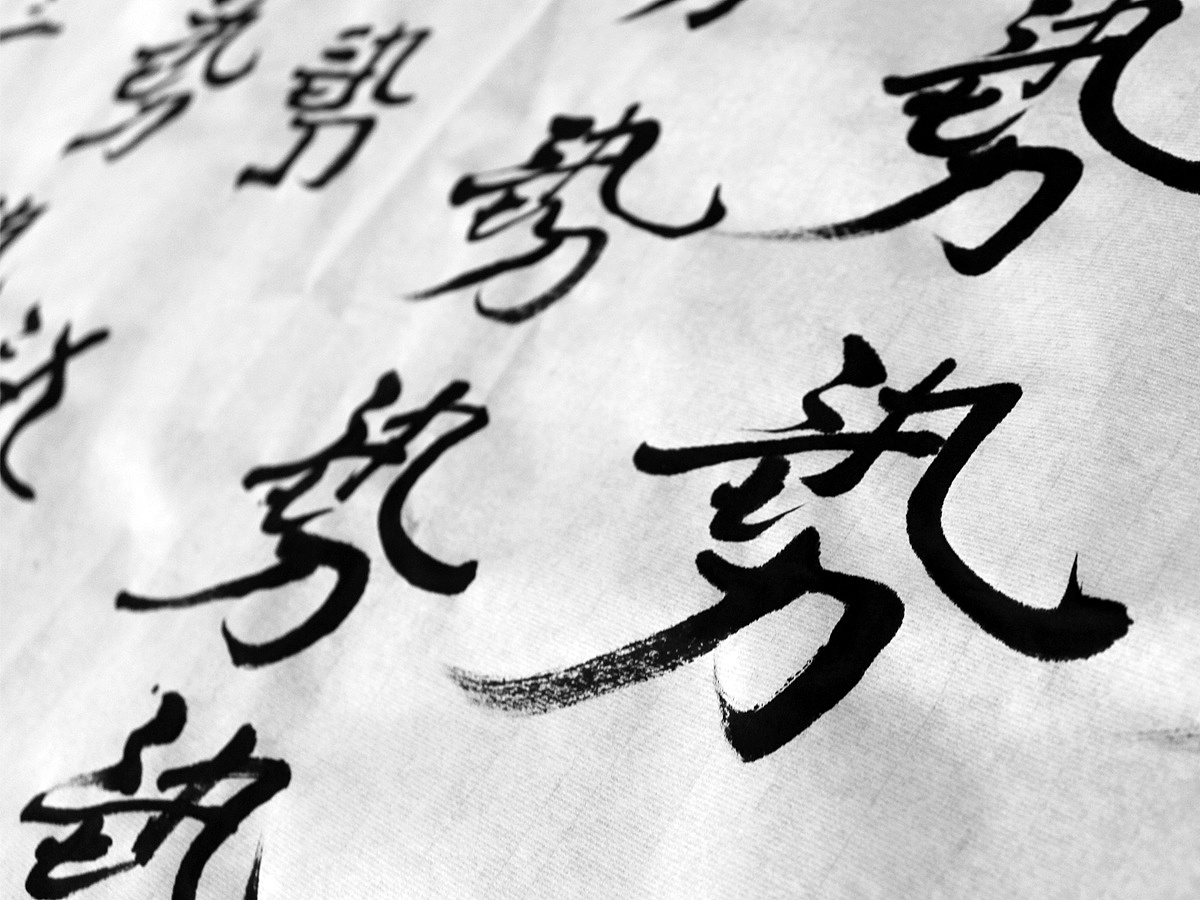 勢 勢 勢 勢
勢 勢
勢